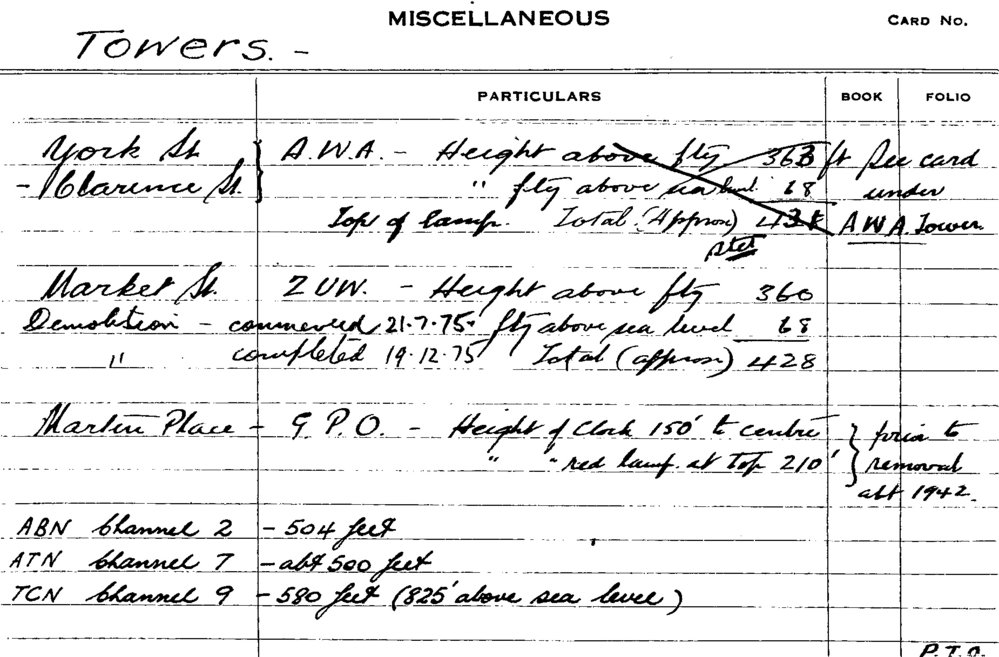 MISCELLANEOUS
CARD NO.
Towers. -
PARTICULARS BOOK FOLIO
York St } A.W.A. - Height above fty 363 ft See card
- Clarence St. " fty above sea level. 68 under
Top of lamp. Total (Approx) 431 AWA Tower
stet
Market St. 2UW. - Height above fty 360
Demolition - commenced 21.7.75. fty above sea level 68
" completed 19.12.75 Total (approx) 428
Martin Place - G.P.O. - Height of Clock 150' to centre } prior to
" " red lamp at top 210' removal
abt 1942.
ABN Channel 2 - 504 feet
ATN Channel 7 - abt 500 feet
TCN Channel 9 - 580 feet (825' above sea level)
P.T.O.